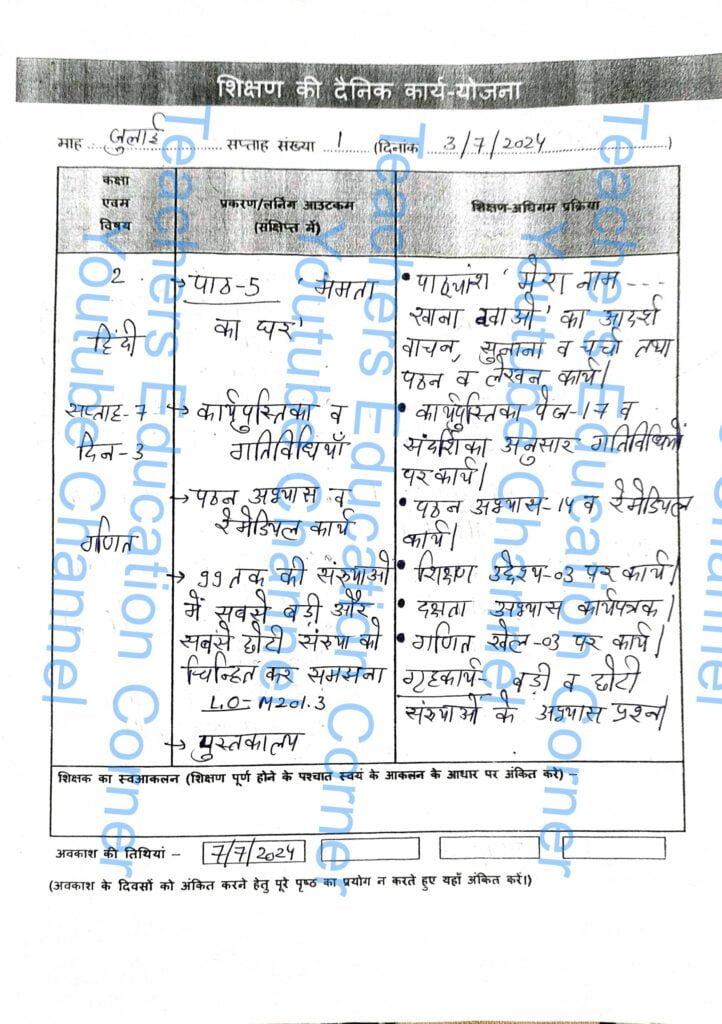 शिक्षण की दैनिक कार्य-योजना
माह जुलाई सप्ताह संख्या 1 (दिनाक 3/7/2024)
कक्षा
एवम
विषय
प्रकरण/लर्निंग आउटकम
(संक्षिप्त में)
शिक्षण-अधिगम प्रक्रिया
2
हिंदी
सप्ताह-7
दिन-3
गणित
→ पाठ-5 'ममता
का घर'
→ कार्यपुस्तिका व
गतिविधियाँ
→ पठन अभ्यास व
रेमेडियल कार्य
→ 99 तक की संख्याओं
में सबसे बड़ी और
सबसे छोटी संख्या को
चिन्हित कर समझना
L.O= M201.3
→ पुस्तकालय
• पाठ्यांश 'मेरा नाम ---
खाना खाओ' का आदर्श
वाचन, सुनाना व चर्चा तथा
पठन व लेखन कार्य।
• कार्यपुस्तिका पेज-17 व
संदर्शिका अनुसार गतिविधियों
पर कार्य।
• पठन अभ्यास-14 व रेमेडियल
कार्य।
• शिक्षण उद्देश्य-03 पर कार्य।
• दक्षता अभ्यास कार्यपत्रक।
• गणित खेल-03 पर कार्य।
गृहकार्य- बड़ी व छोटी
संख्याओं के अभ्यास प्रश्न।
शिक्षक का स्वआकलन (शिक्षण पूर्ण होने के पश्चात स्वयं के आकलन के आधार पर अंकित करें) –
अवकाश की तिथियां – 7/7/2024
(अवकाश के दिवसों को अंकित करने हेतु पूरे पृष्ठ का प्रयोग न करते हुए यहाँ अंकित करें।)
Teachers Education Corner
Youtube Channel
Teachers Education Corner
Youtube Channel
Teachers Education Corner
Youtube Channel